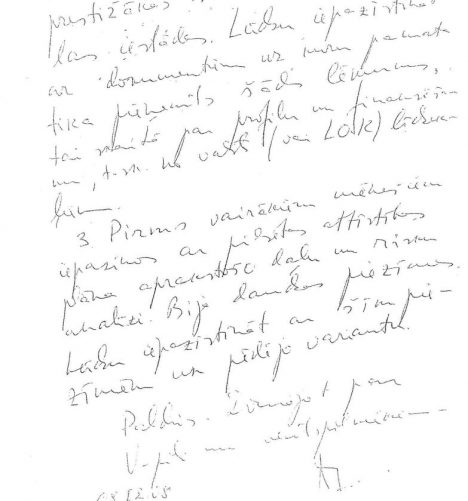 prestižākās
las iestādes. Lūdzu iepazīstināt
ar dokumentiem uz kuru pamata
tika pieņemts šāds lēmums,
tai skaitā par profilu un finansējum
un, t.sk. no valsts (vai LOK) līdzek-
ļiem.
3. Pirms vairākiem mēnešiem
iepazinos ar pilsētas attīstības
plāna aprakstošo daļu un risku
analīzi. Bija daudzas piezīmes.
Lūdzu iepazīstināt ar šīm pie-
zīmēm un pēdējo variantu.
Paldies. Zvanot par
V-pili un